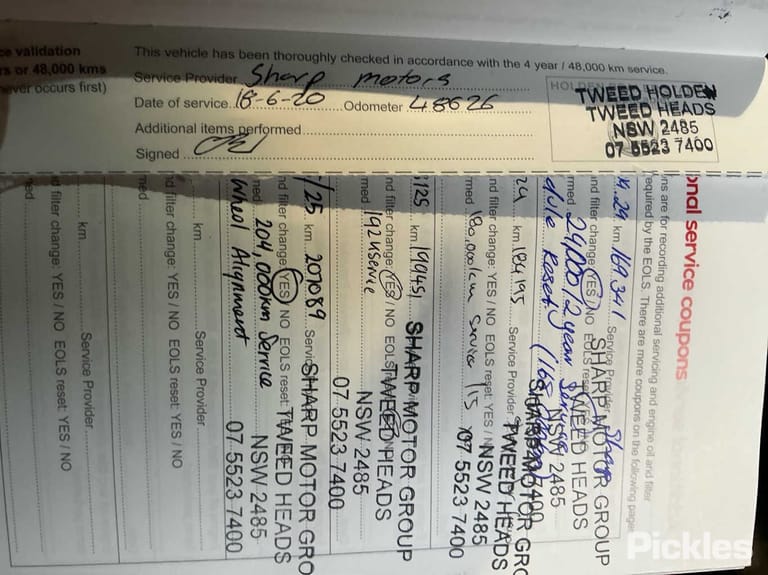 ce validation
rs or 48,000 kms
never occurs first)
This vehicle has been thoroughly checked in accordance with the 4 year / 48,000 km service.
Service Provider Sharp motors
Date of service 18-6-20 Odometer 48626
Additional items performed
Signed
TWEED HOLDEN
TWEED HEADS
NSW 2485
07 5523 7400
onal service coupons
ns are for recording additional servicing and engine oil and filter
equired by the EOLS. There are more coupons on the following page
24 km 169,341 Service Provider Sharp
SHARP MOTOR GROUP
nd filter change: YES / NO
TWEED HEADS
med 24,000/2 year Service
NSW 2485
dule Reset
7400
24 km 184195 Service Provider
SHARP MOTOR GRO
TWEED HEADS
nd filter change: YES / NO EOLS reset: YES / N
NSW 2485
med 180,000km service
07 5523 7400
/25 km 199451
SHARP MOTOR GROUP
nd filter change: YES / NO EOLS
TWEED HEADS
med 192k service
NSW 2485
07 5523 7400
/25 km 207089 Servic
SHARP MOTOR GRO
nd filter change: YES / NO EOLS reset:
TWEED HEADS
med 204,000km Service
NSW 2485
Wheel Alignment
07 5523 7400
km Service Provider
nd filter change: YES / NO EOLS reset: YES / NO
med
km Service Provider
d filter change: YES / NO EOLS reset: YES / NO
ed
Pickles